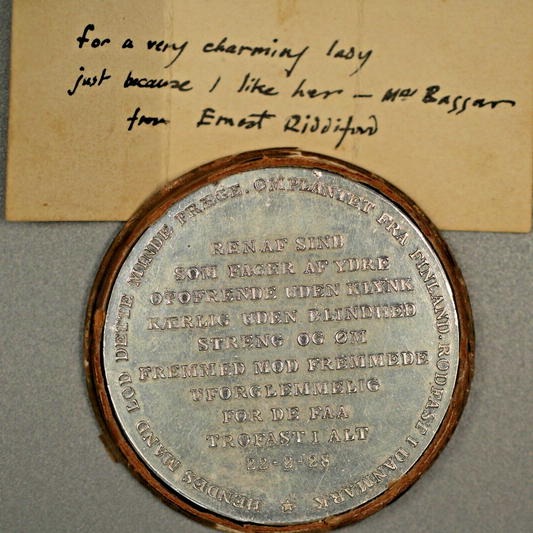 for a very charming lady
just because I like her — Mrs Bassar
from Ernest Riddiford
HENDES MAND LOD DETTE MINDE PRÆGE. OMPLANTET FRA FINLAND. RODFAST I DANMARK
REN AF SIND
SOM FAGER AF YDRE
OPOFRENDE UDEN KLYNK
KÆRLIG UDEN BLINDHED
STRENG OG ØM
FREMMED MOD FREMMEDE
UFORGLEMMELIG
FOR DE FAA
TROFAST I ALT
22-2-28